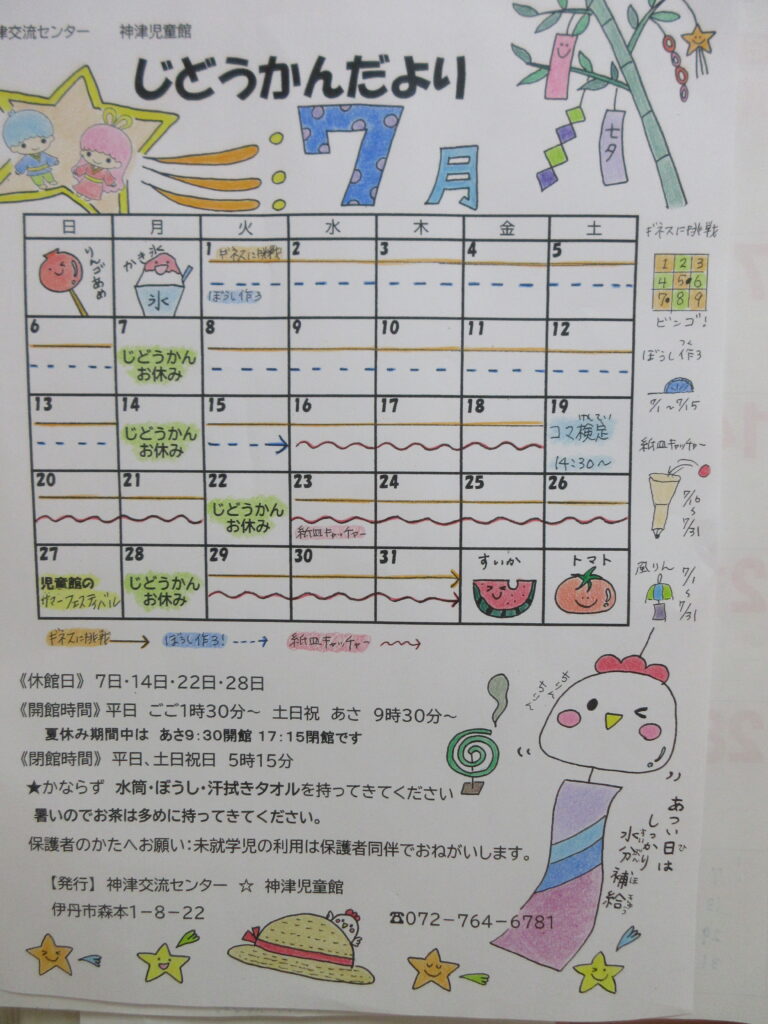 津交流センター　神津児童館
じどうかんだより
7月
七夕
日 月 火 水 木 金 土
りんごあめ
かき氷
氷
1 2 3 4 5
ギネスに挑戦
ぼうし作ろ
6 7 8 9 10 11 12
じどうかん
お休み
13 14 15 16 17 18 19
じどうかん
お休み
けんてい
コマ検定
14:30～
20 21 22 23 24 25 26
じどうかん
お休み
紙皿キャッチャー
27 28 29 30 31
児童館の
サマーフェスティバル
じどうかん
お休み
すいか
トマト
ギネスに挑戦
ぼうし作ろ!
紙皿キャッチャー
ギネスに挑戦
1 2 3
4 5 6
7 8 9
ビンゴ!
つく
ぼうし作ろ
7/1～7/15
紙皿キャッチャー
7/16
～
7/31
風りん
7/1
～
7/31
《休館日》 7日・14日・22日・28日
《開館時間》平日 ごご1時30分～ 土日祝 あさ 9時30分～
夏休み期間中は あさ9:30開館 17:15閉館です
《閉館時間》 平日、土日祝日 5時15分
★かならず 水筒・ぼうし・汗拭きタオルを持ってきてください
暑いのでお茶は多めに持ってきてください。
保護者のかたへお願い:未就学児の利用は保護者同伴でおねがいします。
【発行】 神津交流センター ☆ 神津児童館
伊丹市森本1-8-22
☎072-764-6781
ちりん
ちりん
あつい日は
ひ
しっかり
水分補給
すいぶんほきゅう